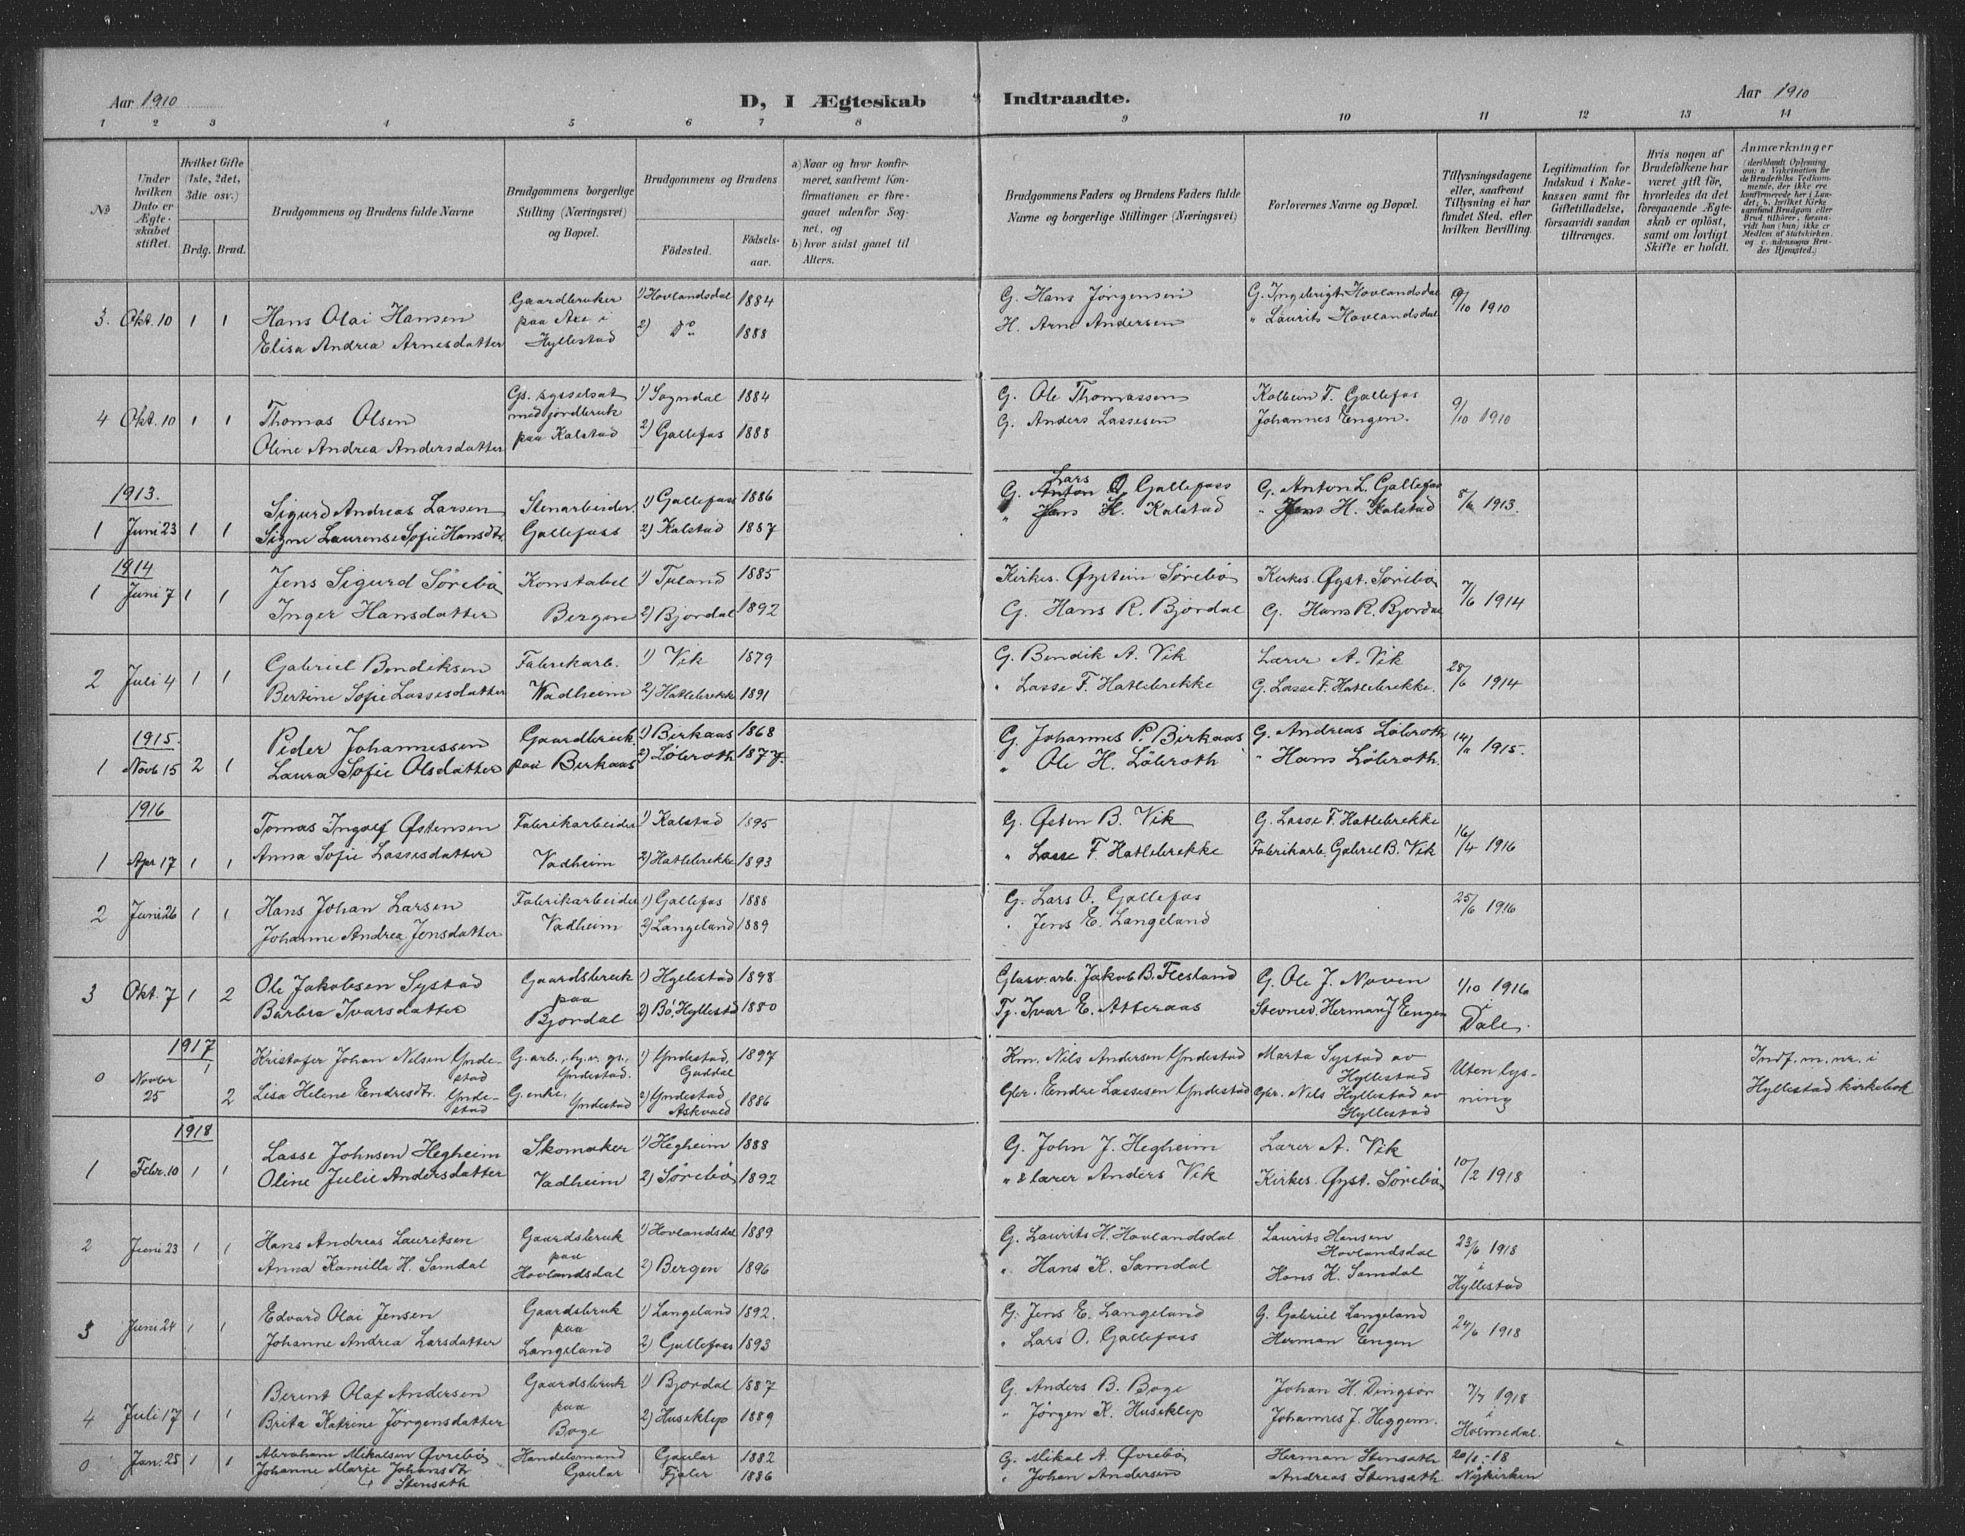 Aar 1910
D, I Ægteskab Indtraadte.
Aar 1910
1 2 3 4 5 6 7 8 9 10 11 12 13 14
No
Under hvilken Dato er Ægteskabet stiftet.
Hvilket Gifte (1ste, 2det, 3die osv.)
Brdg. Brud.
Brudgommens og Brudens fulde Navne
Brudgommens borgerlige Stilling (Næringsvei) og Bopæl.
Brudgommens og Brudens
Fødested.
Fødselsaar.
a) Naar og hvor konfirmeret, saafremt Konfirmationen er foregaaet udenfor Sognet, og
b) hvor sidst gaaet til Alters.
Brudgommens Faders og Brudens Faders fulde Navne og borgerlige Stillinger (Næringsvei)
Forlovernes Navne og Bopæl.
Tillysningsdagene eller, saafremt Tillysning ei har fundet Sted, efter hvilken Bevilling.
Legitimation for Indskud i Enkekassen samt for Giftetilladelse, forsaavidt saadan tiltrænges.
Hvis nogen af Brudefolkene har været gift før, hvorledes da det foregaaende Ægteskab er opløst, samt om lovligt Skifte er holdt.
Anmærkninger
3. Okt. 10 1 1 Hans Olai Hansen Gaardbruker paa Axe i Hyllestad 1) Hovlandsdal 1884 G. Hans Jørgensen G. Ingebrigt Hovlandsdal 9/10 1910
Elisa Andrea Arnesdatter 2) do 1888 H. Arne Andersen " Laurits Hovlandsdal
4 Okt. 10 1 1 Thomas Olsen Gs. sysselsat med jordbruk paa Kalstad 1) Sogndal 1884 G. Ole Thomassen Kolbein T. Gallefos 9/10 1910
Oline Andrea Andersdatter 2) Gallefos 1888 G. Anders Lassesen Johannes Engen.
1913.
1 Juni 23 1 1 Sigurd Andreas Larsen Stenarbeider. 1) Gallefoss 1886 G. Lars O. Gallefoss G. Anton L. Gallefos 8/6 1913.
Signe Laurense Sofie Hansdtr. Gallefoss 2) Kalstad 1887 " Hans H. Kalstad " Jens H. Kalstad
1914
1 Juni 7 1 1 Jens Sigurd Sørebø Konstabel 1) Tuland 1885 Kirkes. Øystein Sørebø Kirkes. Øyst. Sørebø 7/6 1914
Inger Hansdatter Bergen 2) Bjordal 1892 G. Hans R. Bjordal G. Hans R. Bjordal
2 Juli 4 1 1 Gabriel Bendiksen Fabrikarb. 1) Vik 1879 G. Bendik A. Vik Lærer A. Vik 28/6 1914
Bertine Sofie Lassesdatter Vadheim 2) Hatlebrekk 1891 " Lasse F. Hatlebrekke G. Lasse F. Hatlebrekke.
1915.
1 Novb 15 2 1 Peder Johannessen Gaardbruk. 1) Birkaas 1868 G. Johannes P. Birkaas G. Andreas Løberoth 14/11 1915.
Laura Sofie Olsdatter paa Birkaas 2) Løberoth 1877. " Ole H. Løberoth " Hans Løberoth.
1916
1 Apr 17 1 1 Tomas Ingolf Østensen Fabrikarbeider 1) Kalstad 1895 G. Østen B. Vik G. Lasse F. Hatlebrekke 16/4 1916
Anna Sofie Lassesdatter Vadheim 2) Hatlebrekke 1893 " Lasse F. Hatlebrekke Fabrikarb. Gabriel B. Vik
2 Juni 26 1 1 Hans Johan Larsen Fabrikarbeider 1) Gallefos 1888 G. Lars O. Gallefos 25/6 1916
Johanne Andrea Jensdatter Vadheim 2) Langeland 1889 " Jens E. Langeland
3 Okt. 7 1 2 Ole Jakobsen Systad Gaardsbruk paa Bjordal 1) Hyllestad 1898 Glasv.arb. Jakob B. Flesland G. Ole J. Noven 1/10 1916 i Dale.
Barbra Ivarsdatter 2) Bø. Hyllestad 1880 Tj. Ivar E. Atteraas Stevned. Herman J Engen
1917
0 Novbr 25 1 2 Kristofer Johan Nilsen Yndestad G. arb., hj.v. gr., Yndestad. 1) Yndestad, Guddal 1897 Km. Nils Andersen Yndestad Marta Systad av Hyllestad Uten lysning Indf. m. nr. i Hyllestad kirkebok
Lisa Helene Endresdtr. Yndestad G. enke, Yndestad 2) Yndestad Askvold 1886 Gbr. Endre Lassesen Yndestad Gbr. Nils Hyllestad av Hyllestad
1918
1 Febr. 10 1 1 Lasse Johnsen Hegheim Skomaker 1) Hegheim 1888 G. John J. Hegheim Lærer A. Vik 10/2 1918
Oline Julie Andersdatter Vadheim 2) Sørebø 1892 " & lærer Anders Vik Kirkes. Øyst. Sørebø
2 Juni 23 1 1 Hans Andreas Lauritsen Gaardsbruk paa Hovlandsdal 1) Hovlandsdal 1889 G. Laurits H. Hovlandsdal Laurits Hansen Hovlandsdal 23/6 1918 i Hyllestad
Anna Kamilla H. Samdal 2) Bergen 1896 " Hans K. Samdal Hans K. Samdal
3 Juni 24 1 1 Edvard Olai Jensen Gaardsbruk paa Langeland 1) Langeland 1892. G. Jens E. Langeland G. Gabriel Langeland 24/6 1918
Johanne Andrea Larsdatter 2) Gallefoss 1893 " Lars O. Gallefoss Herman Engen
4 Juli 17 1 1 Berent Olaf Andersen Gaardsbruk paa Boge 1) Bjordal 1887 G. Anders B. Boge Johan H. Dingsør 7/7 1918 i Holmedal.
Brita Katrine Jørgensdatter 2) Huseklep 1889 " Jørgen K. Huseklep Johannes J. Heggem.
0 Jan. 25 1 1 Abraham Mikalsen Øvrebø Handelsmand Gaular 1882 G. Mikal A. Øvrebø Herman Stensath 20/1 - 18 Nykirken
Johanne Marie Johansdtr Stensath Gaular Fjaler 1886 " Johan Andersen Andreas Stensath